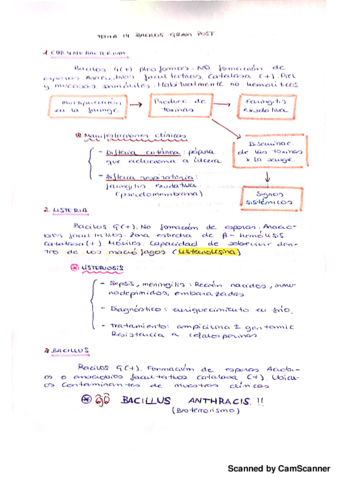 TEMA 14 BACILOS GRAM POSIT
1. CORYNEBACTERIUM
Bacilos G(+) pleomorfos. NO formación de
esporas Anaerobios facultativos Catalasa (+). Piel
y mucosas animales. Habitualmente no hemolíticos
Multiplicación en la faringe → Produce de toxinas → Faringitis exudativa
Diseminac de las toxinas x la sangre.
Signos sistémicos
Manifestaciones clínicas
- Difteria cutánea: pápula
que evoluciona a úlcera.
- Difteria respiratoria:
faringitis exudativa
(pseudomembrana)
2. LISTERIA
Bacilos G(+). No formación de esporas. Anaero-
bios facultativos. Zona estrecha de β-hemólisis
Catalasa (+) Móviles. Capacidad de sobrevivir den-
tro de los macrófagos (Listeriolisina)
LISTERIOSIS
- Sepsis, meningitis: Recién nacidos, inmu-
nodeprimidos, embarazadas
- Diagnóstico: enriquecimiento en frío.
- Tratamiento: ampicilina + gentamic
Resistencia a cefalosporinas
BACILLUS
Bacilos G(+). Formación de esporas Aerobi-
os o anaerobios facultativos Catalasa (+) Ubicuos
Contaminantes de muestras clínicas
BACILLUS ANTHRACIS !!
(Bioterrorismo)
Scanned by CamScanner